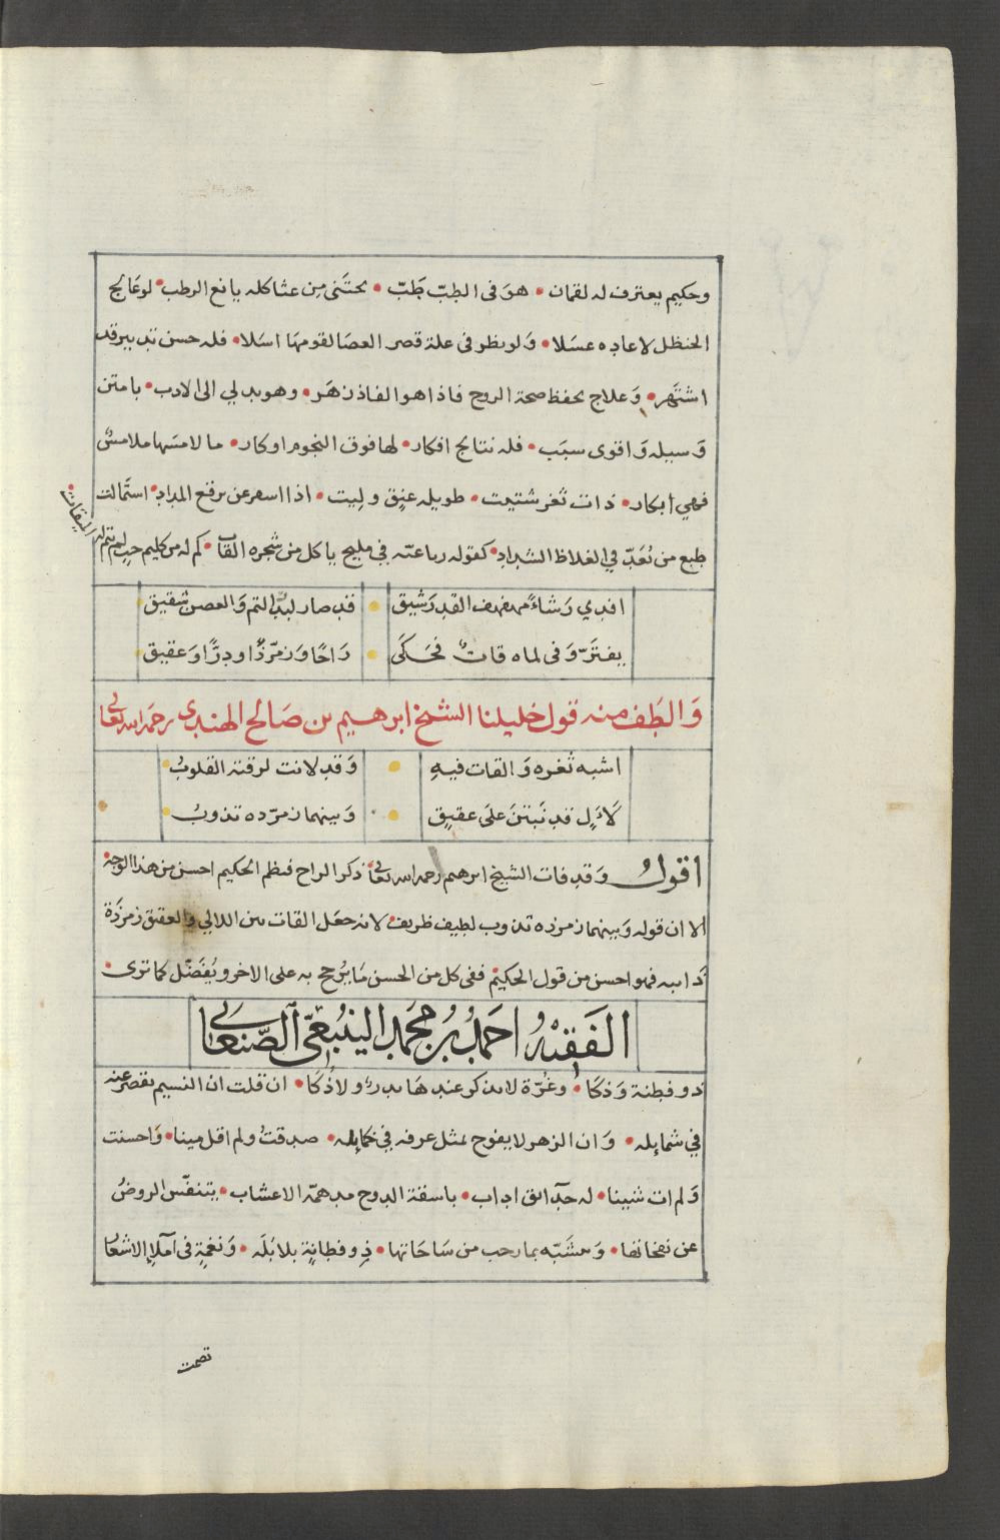 وحكيم يعترف له لقمان • هوَ فى الطبّ طَبّ • يحتَنى مِن عثاكله يانع الرطب • لو عَالج
الحنظل لاعاده عسَلا • وَلو نظر فى علة قصر العصَا لقومهَا اسَلا • فله حسن تدبير قد
اشتَهر • وَعلاج يحفظ صحة الروح فاذا هو الفاذزهَر • وهو يدلي الى الادب • بامتن
وَسيله وَاقوى سبَب • فله نتايج افكار • لها فوق النجوم اوكار • ما لامسَها ملامسٌ
فهي ابكار • ذات ثغر شتيت • طويله عنِق وليت • اذا اسفر عن برقع المداد • استَمالت
طبع من نُعَدّ في الغلاظ الشداد • كقوله رباعيّه في مليح ياكل من شجره القات • كم له من كليم حبٍ لم يتم له الميقات •
افدي رَشاءً مهفهف القدِ رَشيق • قد صار لبدر التم وَالغصن شقيق
يفترّ وَفى لماه قاتٌ فحَكَى • رَاحًا وَزمرّذًا ودرًّا وَعقيق
وَالطَف منه قول خليلنا الشيخ ابرهيم بن صَالح الهندى رحمَه الله تعَالى
اشبه ثغره وَالقات فيهِ • وَقد لانت لرقته القلوبُ
لآلٍ قد نَبتنَ علَى عقيقٍ • وَبينهما زمرّده تذوبُ
اقولُ وَقد فات الشيخ ابرهيم رحمه الله تعالى ذكر الراح فنظم الحكيم احسن من هذا الوجه
الا ان قوله وَبينهما زمرذه تذوب لطيف ظريف لانه جعَل القات بين اللالي والعقيق زمرَدة
ذايبه فهوا احسن من قول الحكيم ففى كل من الحسن مَا يُرجح به على الاخر ويُفَضّل كما ترى •
الفَقيْهُ احمَدُ بْنُ محمَد الينبُعيّ الصّنعَانى
ذو فطنة وَذكَا • وغُرّة لا يذكر عندهَا بدرٌ ولا ذُكَا • ان قلت ان النسيم يقصر عنه
في شمايله • وَان الزهر لا يفوح بمثل عرفه في خمايله • صدقتُ ولم اقل مينا • وَاحسنت
وَلم ات شينا • له حدآئق اداب • باسقة الدوح مدهمّة الاعشاب • يتنفّس الروضُ
عن نفحاتها • وَمشَبّه بما رحب من سَاحَاتها • ذو فطانةٍ بلا بُلَه • وَنغمةٍ فى املاِ الاشعار
تصمت